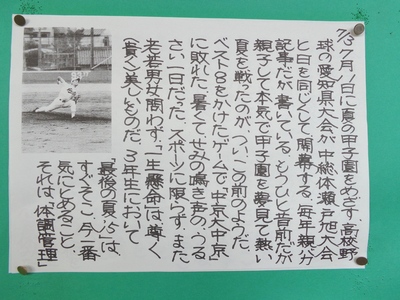 7/3 7月11日に夏の甲子園をめざす、高校野
球の愛知県大会が中総体瀬戸旭大会
と日を同じくして、開幕する。毎年親父が
記事だが書いている。もうひと昔前だが
親子して本気で甲子園を夢見て熱い
夏を戦ったのが、つい、この前のようだ。
ベスト8をかけたゲームで「中京大中京」
に敗れた、暑くて、せみの鳴き声の、うる
さい一日だった。スポーツに限らず、また
老若男女問わず、「一生懸命」は尊く
(貴く)美しいものだ。3年生において
「最後の夏」は、
すぐそこ、今一番
気にとめること、
それは、「体調管理」